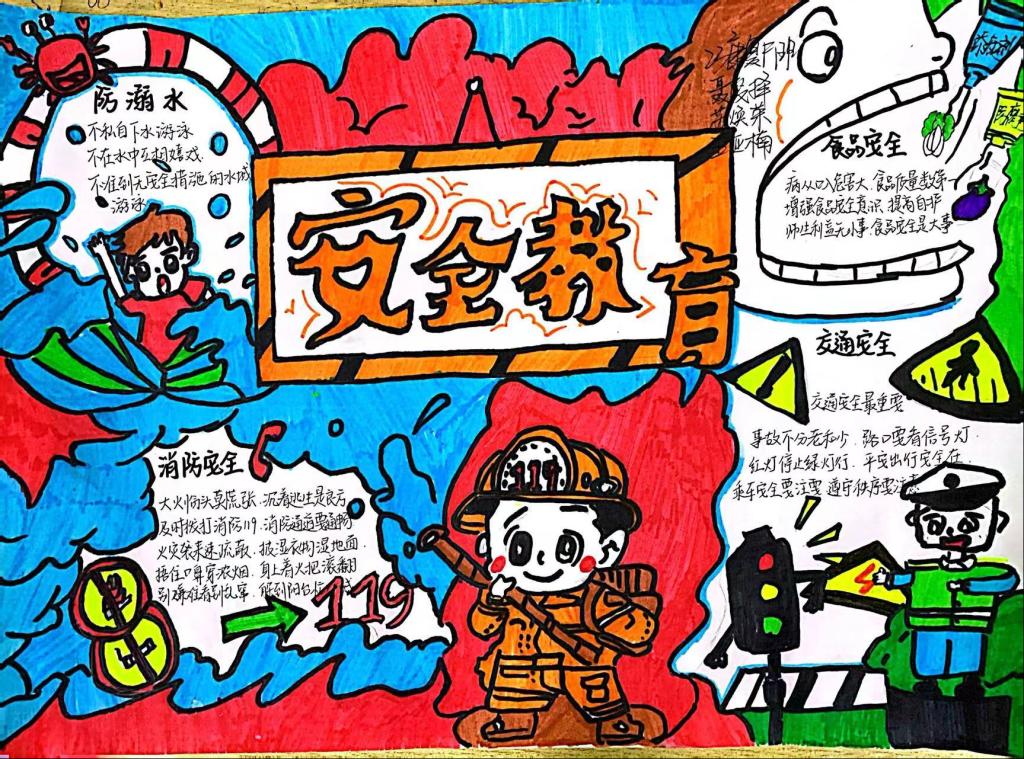 防溺水
不私自下水游泳
不在水中互相嬉戏
不准到无安全措施的水域
游泳
安全教育
食品安全
病从口入危害大.食品质量
增强食品安全意识.提高自护
师生利益无小事.食品安全是大事
交通安全
交通安全最重要
事故不分老和少.路口要看信号灯.
红灯停止绿灯行.平安出行安全在.
乘车安全要注要遵守秩序要注意
消防安全
大火临头莫慌张.沉着逃生是良方
及时拨打消防119.消防通道要通畅
火灾袭来速疏散.披湿衣物湿地面.
捂住口鼻穿浓烟.身上着火把滚翻
119
119